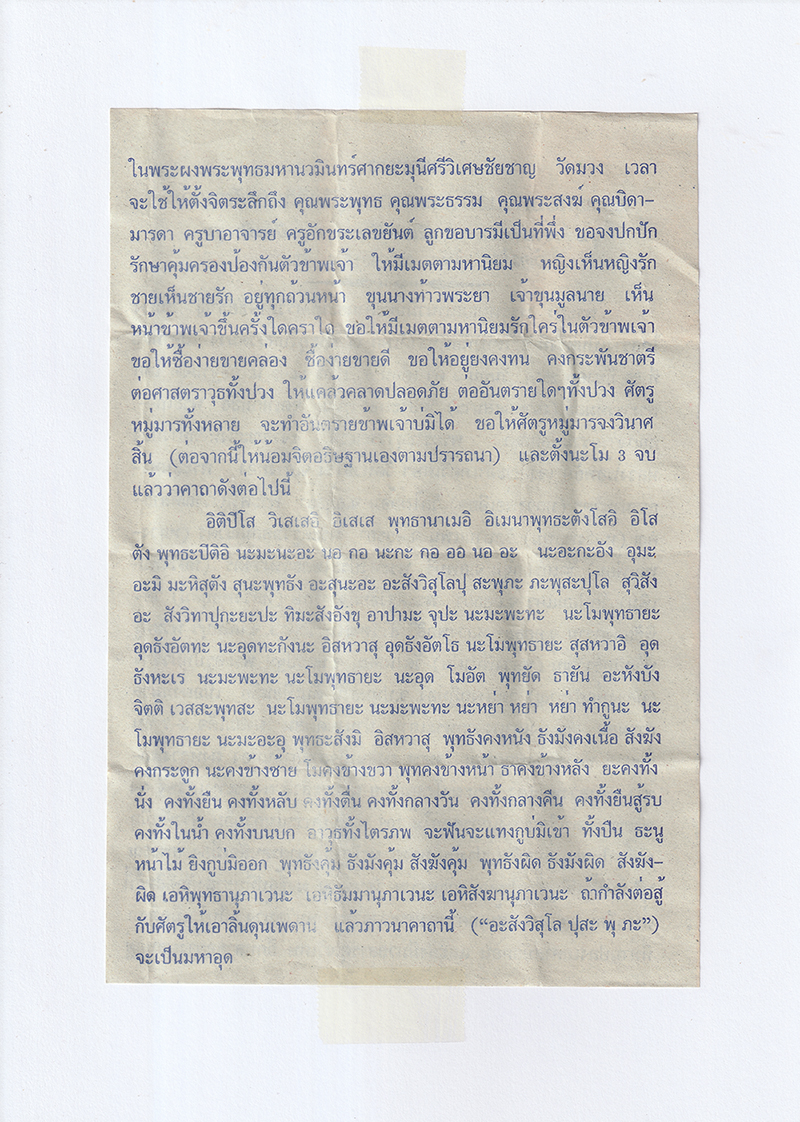 ในพระผงพระพุทธมหานวมินทร์ศากยะมุนีศรีวิเศษชัยชาญ วัดมวง เวลา
จะใช้ให้ตั้งจิตระลึกถึง คุณพระพุทธ คุณพระธรรม คุณพระสงฆ์ คุณบิดา–
มารดา ครูบาอาจารย์ ครูอักขระเลขยันต์ ลูกขอบารมีเป็นที่พึ่ง ขอจงปกปัก
รักษาคุ้มครองป้องกันตัวข้าพเจ้า ให้มีเมตตามหานิยม หญิงเห็นหญิงรัก
ชายเห็นชายรัก อยู่ทุกถ้วนหน้า ขุนนางท้าวพระยา เจ้าขุนมูลนาย เห็น
หน้าข้าพเจ้าขึ้นครั้งใดคราใด ขอให้มีเมตตามหานิยมรักใคร่ในตัวข้าพเจ้า
ขอให้ซื้อง่ายขายคล่อง ซื้อง่ายขายดี ขอให้อยู่ยงคงทน คงกระพันชาตรี
ต่อศาสตราวุธทั้งปวง ให้แคล้วคลาดปลอดภัย ต่ออันตรายใดๆทั้งปวง ศัตรู
หมู่มารทั้งหลาย จะทำอันตรายข้าพเจ้าบ่มิได้ ขอให้ศัตรูหมู่มารจงวินาศ
สิ้น (ต่อจากนี้ให้น้อมจิตอธิษฐานเองตามปรารถนา) และตั้งนะโม 3 จบ
แล้วว่าคาถาดังต่อไปนี้
อิติปิโส วิเสเสอิ อิเสเส พุทธานาเมอิ อิเมนาพุทธะตังโสอิ อิโส
ตัง พุทธะปีติอิ นะมะนะอะ นอ กอ นะกะ กอ ออ นอ อะ นะอะกะอัง อุมะ
อะมิ มะหิสุตัง สุนะพุทธัง อะสุนะอะ อะสังวิสุโลปุ สะพุภะ ภะพุสะปุโล สุวิสัง
อะ สังวิทาปุกะยะปะ ทิมะสังอังขุ อาปามะ จุปะ นะมะพะทะ นะโมพุทธายะ
อุดธังอัตทะ นะอุดทะกังนะ อิสหวาสุ อุดธังอัตโธ นะโมพุทธายะ สุสหวาอิ อุด
ธังหะเร นะมะพะทะ นะโมพุทธายะ นะอุด โมอัต พุทยัด ธายัน อะหังบัง
จิตติ เวสสะพุทสะ นะโมพุทธายะ นะมะพะทะ นะหย่า หย่า หย่า ทำกูนะ นะ
โมพุทธายะ นะมะอะอุ พุทธะสังมิ อิสหวาสุ พุทธังคงหนัง ธังมังคงเนื้อ สังฆัง
คงกระดูก นะคงข้างซ้าย โมคงข้างขวา พุทคงข้างหน้า ธาคงข้างหลัง ยะคงทั้ง
นั่ง คงทั้งยืน คงทั้งหลับ คงทั้งตื่น คงทั้งกลางวัน คงทั้งกลางคืน คงทั้งยืนสู้รบ
คงทั้งในน้ำ คงทั้งบนบก อาวุธทั้งไตรภพ จะฟันจะแทงกูบ่มิเข้า ทั้งปืน ธะนู
หน้าไม้ ยิงกูบ่มิออก พุทธังคุ้ม ธังมังคุ้ม สังฆังคุ้ม พุทธังผิด ธังมังผิด สังฆัง–
ผิด เอหิพุทธานุภาเวนะ เอหิธัมมานุภาเวนะ เอหิสังฆานุภาเวนะ ถ้ากำลังต่อสู้
กับศัตรูให้เอาลิ้นดุนเพดาน แล้วภาวนาคาถานี้ (“อะสังวิสุโล ปุสะ พุ ภะ”)
จะเป็นมหาอุด